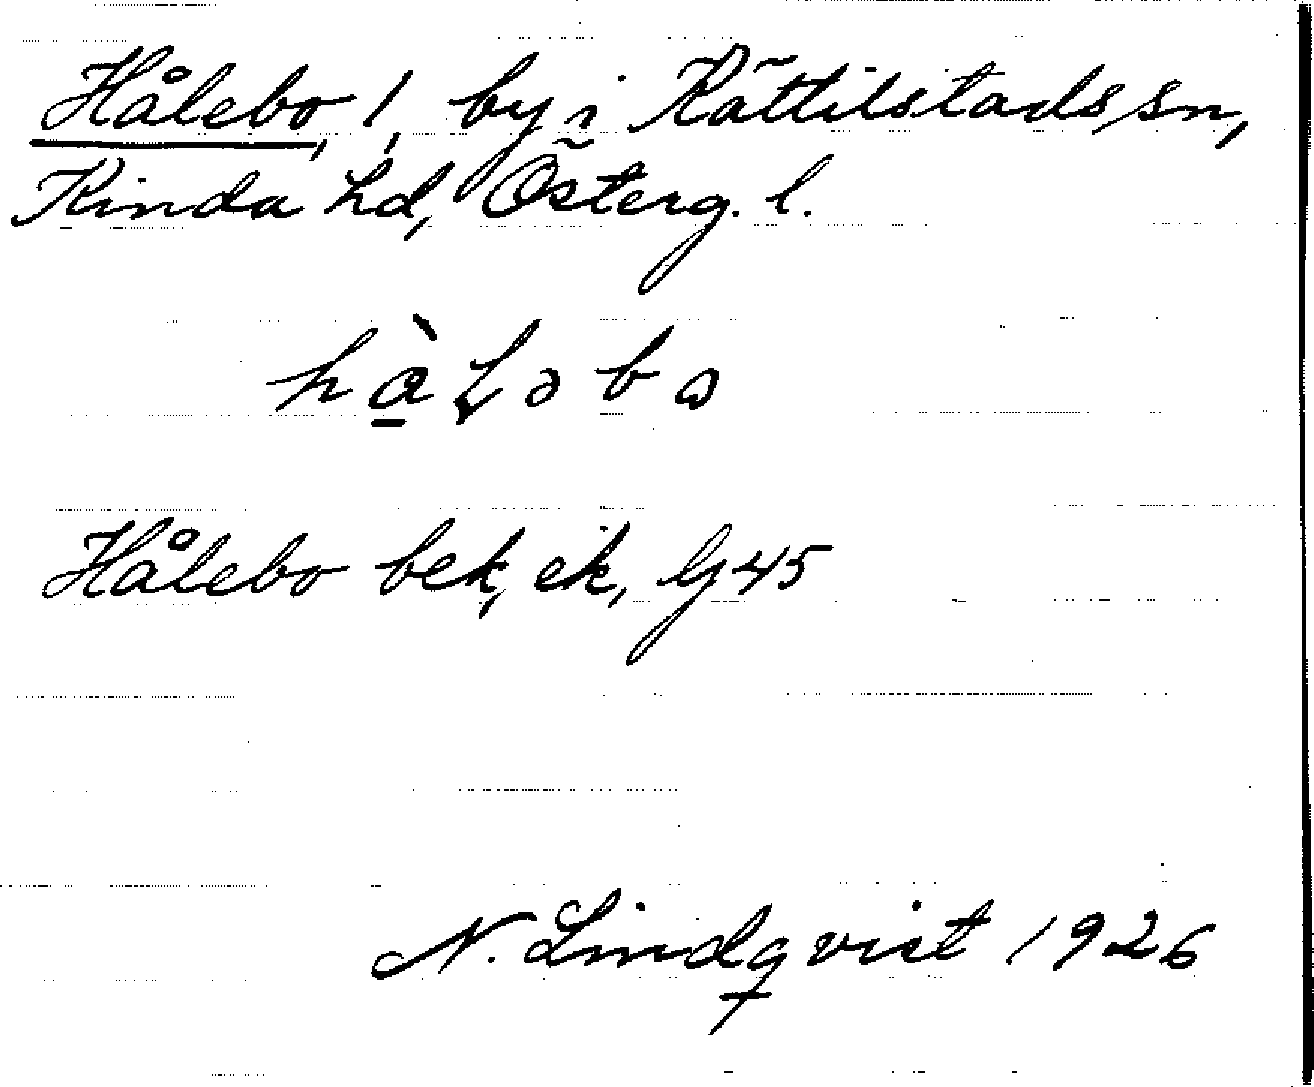 Hålebo, 1, by i Kättilstads sn,
Kinda hd, Österg. l.
hàLəbo
Hålebo bek, ek, Gj45
N. Lindqvist 1926